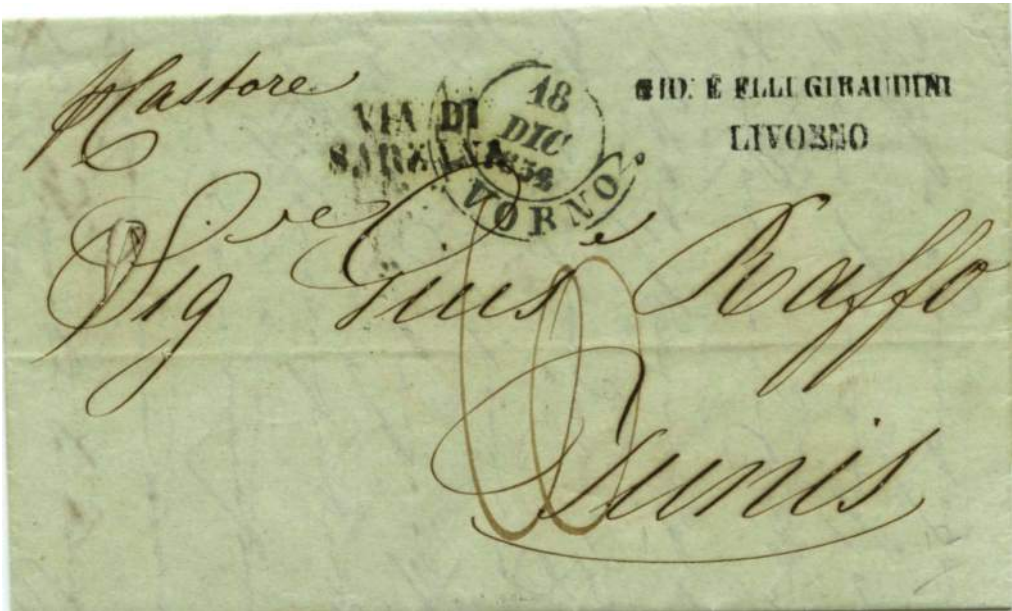 Castore
VIA DI
SARZANA
18
DIC
1854
LIVORNO
GIO. E FLLI GIRAUDINI
LIVORNO
Sig.re Gius.e Raffo
Tunis